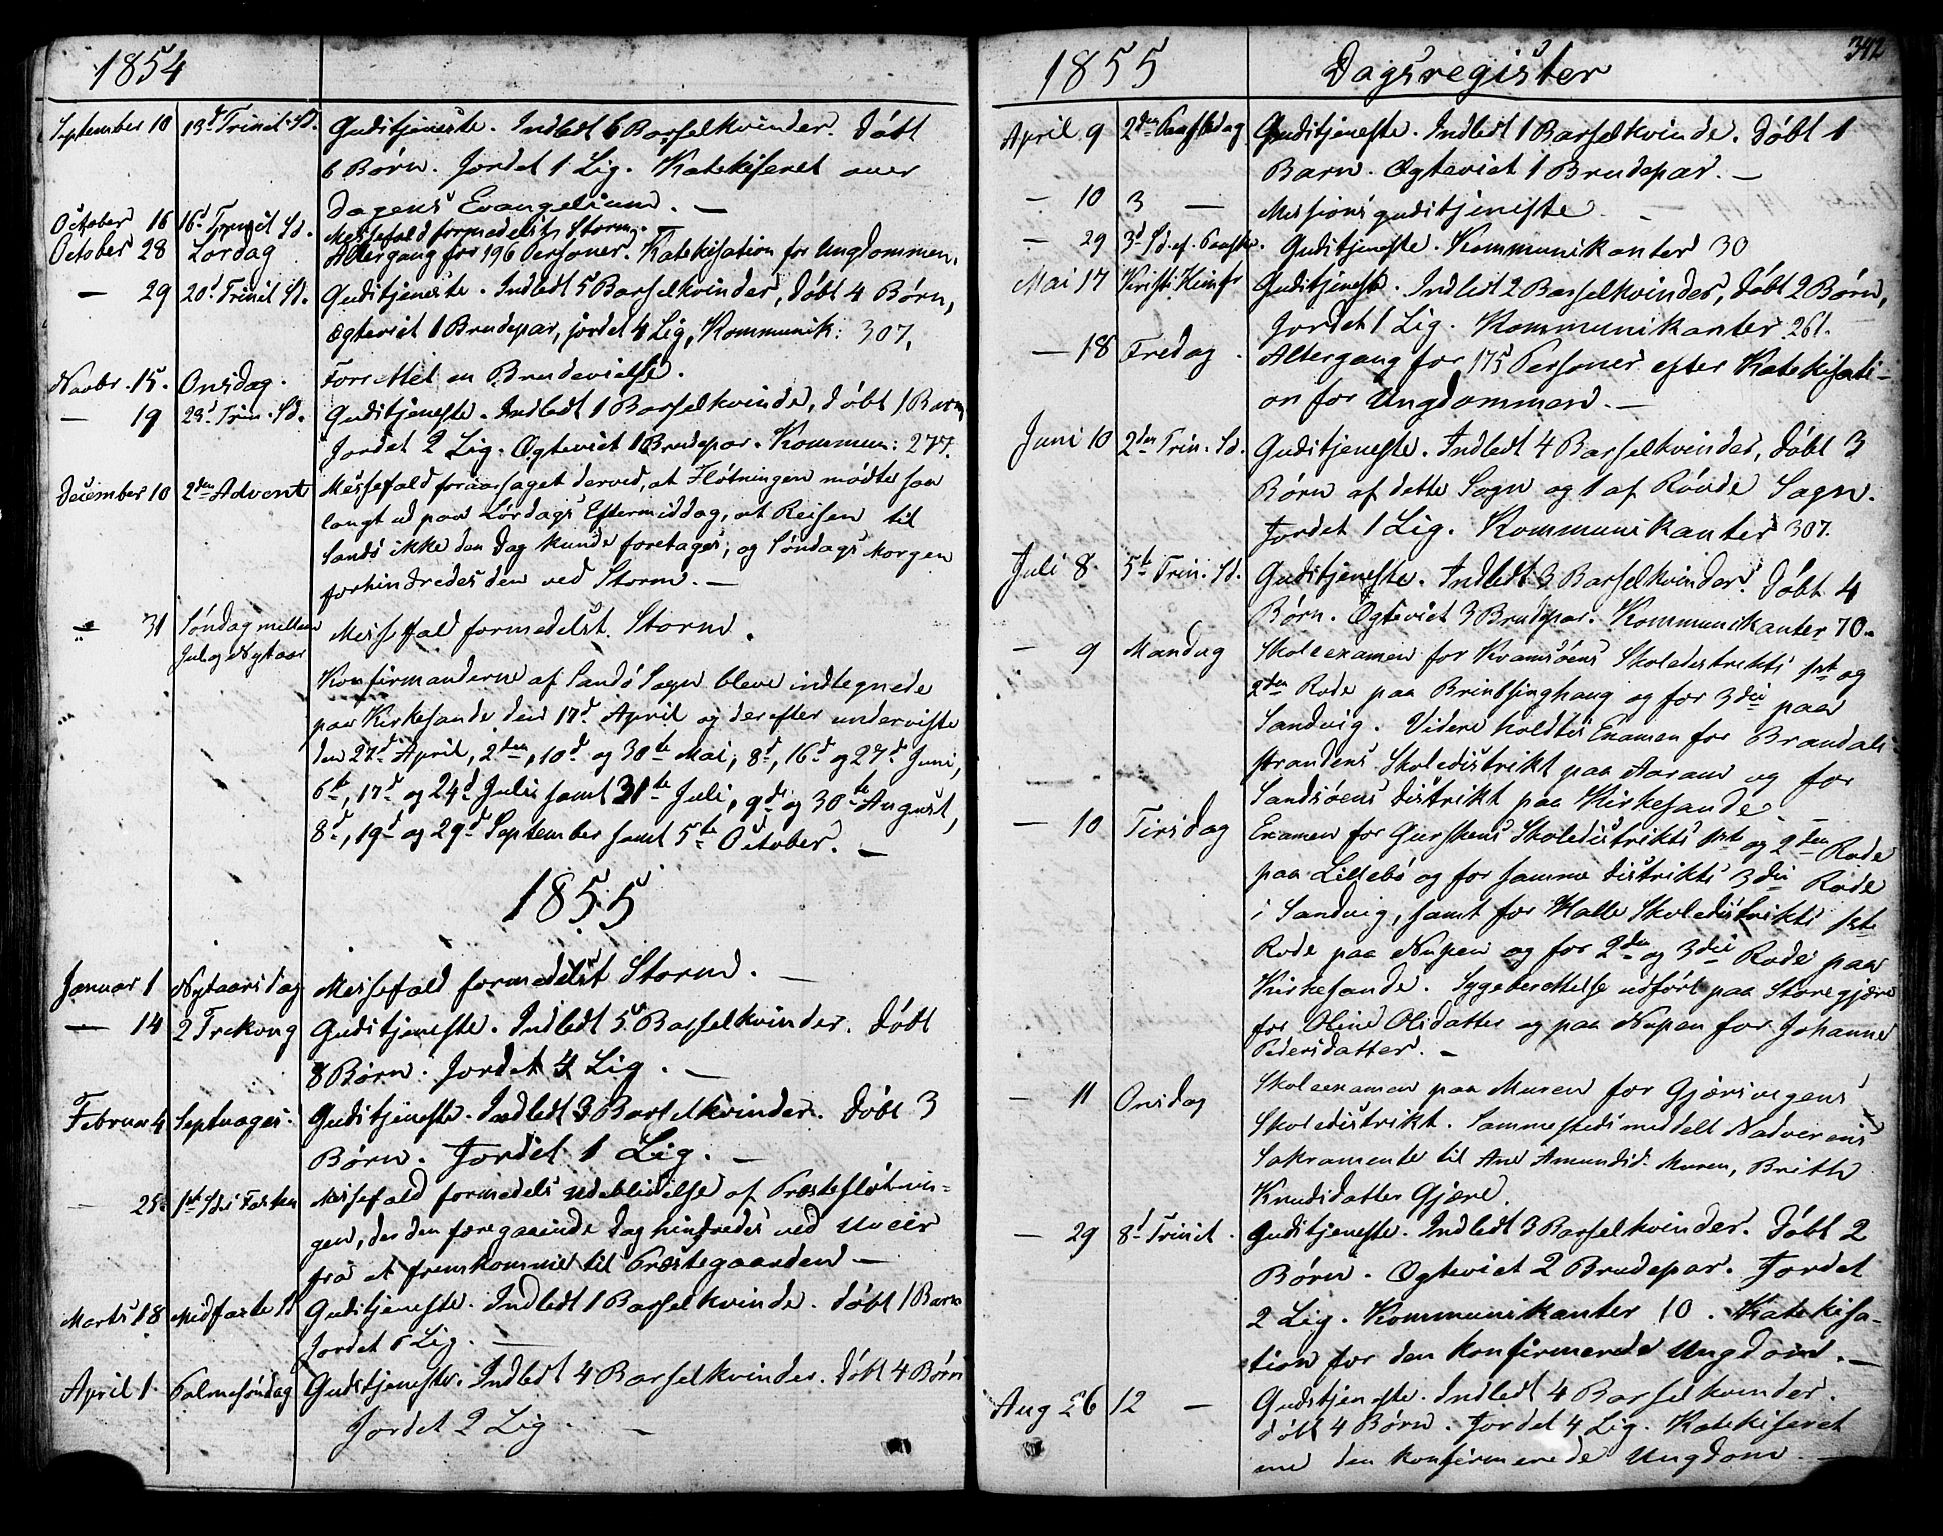 1854
September 10 13d Trinit. Sd. Gudstjeneste. Indledt 6 Barselkvinder. Døbt
6 Børn. Jordet 1 Lig. Katekiseret over
Dagens Evangelium. —
October 16 16d Trinit Sd. Messefald formedelst Storm. —
October 28 Lørdag Altergang for 196 Personer. Katekisation for Ungdommen.
— 29 20d Trinit Sd. Gudstjeneste. Indledt 5 Barselkvinder, døbt 4 Børn,
ægteviet 1 Brudepar, jordet 4 Lig, Kommunik: 307.
Novbr. 15. Onsdag. Forrettet en Brudevielse.
— 19 23d Trin. Sd. Gudstjeneste. Indledt 1 Barselkvinde, døbt 1 Barn
Jordet 2 Lig. Ægteviet 1 Brudepar. Kommun: 277.
December 10 2den Advent Messefald foraarsaget derved, at Fløtningen mødte saa
langt ud paa Lørdags Eftermiddag, at Reisen til
Sandø ikke den Dag kunde foretages, og Søndags Morgen
forhindredes den ved Storm. —
— 31 Søndag mellem Messefald formedelst Storm.
Jul og Nytaar
Konfirmanderne af Sandø Sogn bleve indtegnede
paa Kirkesande den 17d April og derefter underviste
den 27d April, 2den, 10d og 30te Mai, 8d, 16d og 27d Juni,
6te, 17d og 24d Juli samt 31te Juli, 9de og 30te August,
8d, 19d og 29d September samt 5te October. —
1855
Januar 1 Nytaarsdag Messefald formedelst Storm. —
— 14 2 Trekong Gudstjeneste. Indledt 5 Barselkvinder. Døbt
8 Børn. Jordet 4 Lig. —
Februar 4 Septuages. Gudstjeneste. Indledt 3 Barselkvinder. Døbt 3
Børn. Jordet 1 Lig. —
— 25. 1ste Sd i Fasten Messefald formedels Udeblivelse af Præstefløtnin-
gen, der den foregaaende Dag hindredes ved Uveir
fra at fremkomme til Præstegaarden —
Marts 18 Midfaste Sd Gudstjeneste. Indledt 1 Barselkvinde. Døbt 1 Barn
Jordet 6 Lig. —
April 1. Palmesøndag Gudstjeneste. Indledt 4 Barselkvinder. Døbt 4 Børn
Jordet 2 Lig. —
1855 Dagsregister 342
April 9 2den Paaskedag Gudstjeneste. Indledt 1 Barselkvinde. Døbt 1
Barn. Ægteviet 1 Brudepar. —
— 10 3 — Missionsgudstjeneste. —
— 29 3d Sd. ef. Paaske. Gudstjeneste. Kommunikanter 30
Mai 17 Kristi Himfr Gudstjeneste. Indledt 2 Barselkvinder, døbt 2 Børn,
Jordet 1 Lig. Kommunikanter 261.
— 18 Fredag. Altergang for 175 Personer efter Katekisati-
on for Ungdommen. —
Juni 10 2den Trin. Sd. Gudstjeneste. Indledt 4 Barselkvinder, døbt 3
Børn af dette Sogn og 1 af Røvde Sogn.
Jordet 1 Lig. Kommunikanter 307.
Juli 8. 5te Trin. Sd. Gudstjeneste. Indledt 3 Barselkvinder. Døbt 4
Børn. Ægteviet 3 Brudepar. Kommunikanter 70.
— 9 Mandag Skoleexamen for Kvamsøens Skoledistrikts 1ste og
2den Rode paa Bringsinghaug og for 3die paa
Sandvig. Videre holdtes Examen for Brandals
strandens Skoledistrikt paa Aaram og for
Sandsøens Distrikt paa Kirkesande. —
— 10 Tirsdag Examen for Gurskens Skoledistrikts 1ste og 2den Rode
paa Lillebø og for samme Distrikts 3die Rode
i Sandvig, samt for Halle Skoledistrikts 1ste
Rode paa Nupen og for 2den og 3die Rode paa
Kirkesande. Sygeberettelse udført paa Storegjære
for Oline Olsdatter og paa Nupen for Johanne
Pedersdatter. —
— 11 Onsdag Skoleexamen paa Muren for Gjærsvegens
Skoledistrikt. Sammesteds meddelt Nadverens
Sakramente til Ane Amundsd. Muren, Brithe
Knudsdatter Gjære.
— 29 8d Trinit. Gudstjeneste. Indledt 3 Barselkvinder. Døbt 2
Børn. Ægteviet 2 Brudepar. Jordet
2 Lig. Kommunikanter 10. Katekisa-
tion for den konfirmerede Ungdom. —
Aug 26 12 — Gudstjeneste. Indledt 4 Barselkvinder.
døbt 4 Børn. Jordet 4 Lig. Katekiseret
me den konfirmerede Ungdom. —